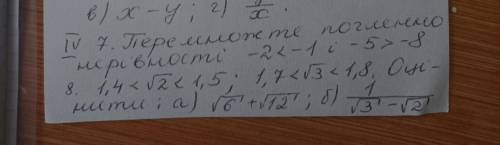 в) x - y ; г) y/x .
IV 7. Перемножте почленно
нерівності -2 < -1 і -5 > -8
8. 1,4 < √2 < 1,5 ; 1,7 < √3 < 1,8. Оці-
нити: а) √6 + √12 ; б) 1/(√3 - √2)